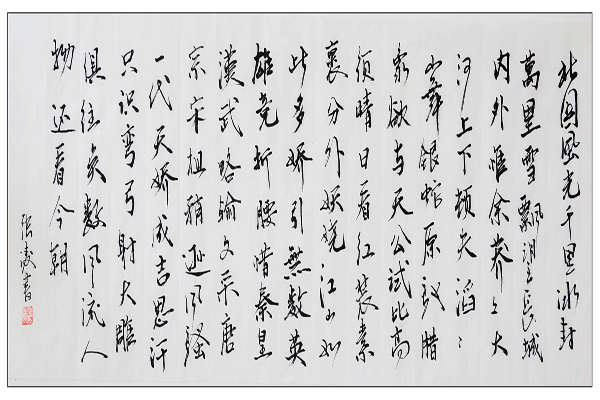 北国風光千里冰封
萬里雪飘望長城
内外惟余莽々大
河上下顿失滔々
山舞银蛇原驰腊
象欲与天公试比高
须晴日看红装素
裹分外妖娆江山如
此多娇引無数英
雄竞折腰惜秦皇
漢武略输文采唐
宗宋祖稍逊风骚
一代天娇成吉思汗
只识弯弓射大雕
俱往矣数风流人
物还看今朝
张凌書